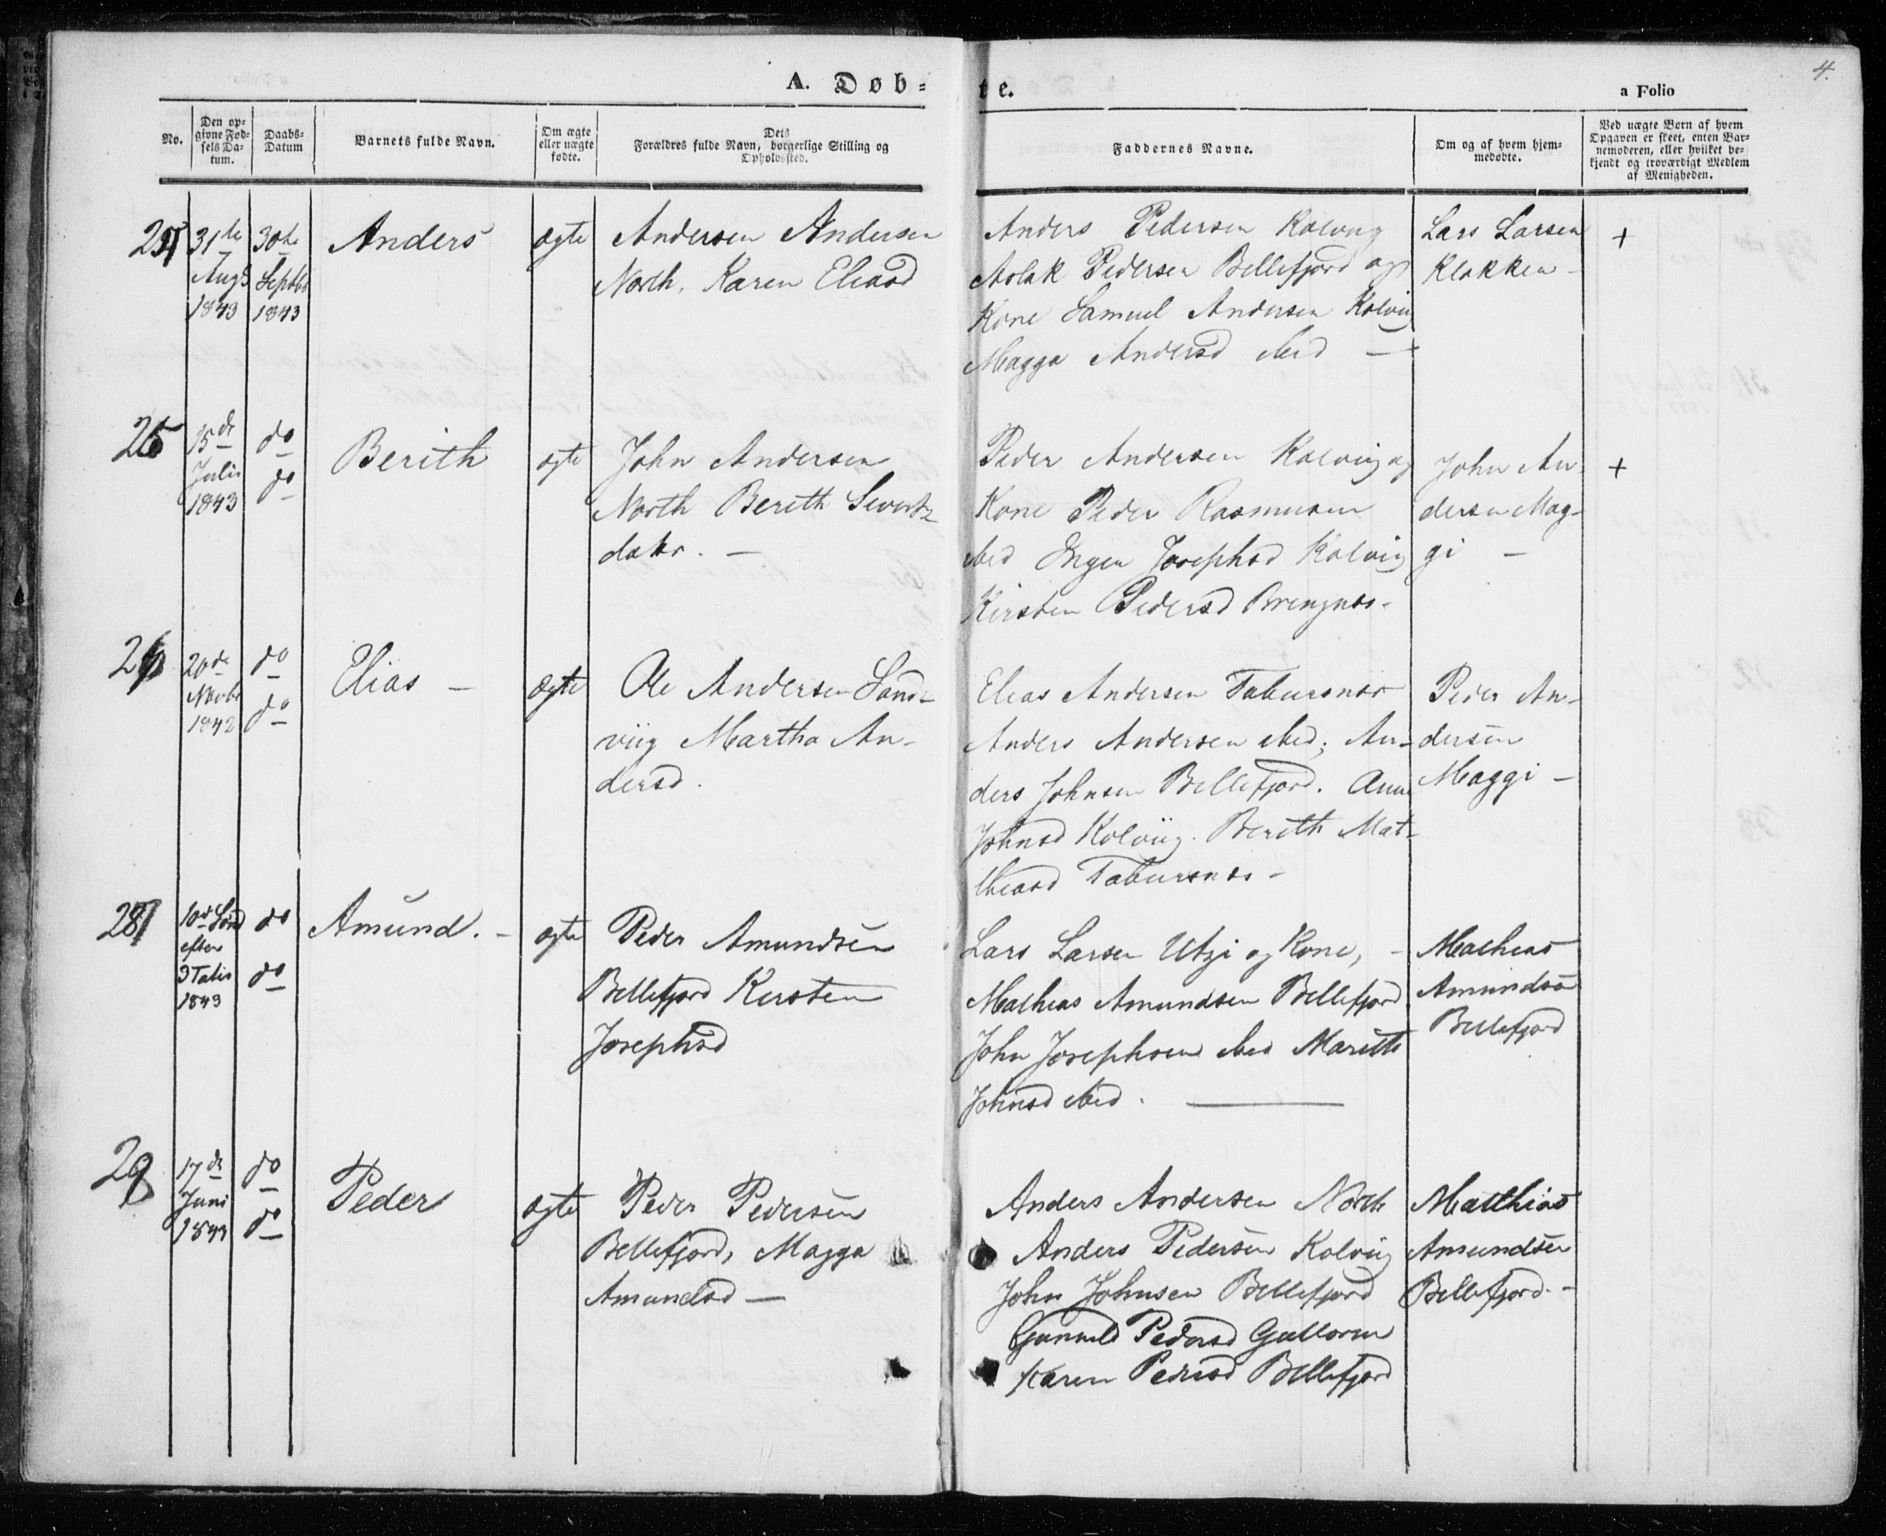 4.
A. Døb=
te.
a Folio
No.
Den op=
givne Fød=
sels Da=
tum.
Daabs=
Datum
Barnets fulde Navn.
Om ægte
eller uægte
fødte.
Dets
Forældres fulde Navn, borgerlige Stilling og
Opholdssted.
Faddernes Navne.
Om og af hvem hjem=
medøbte.
Ved uægte Børn af hvem
Opgaven er skeet, enten Bar=
nemoderen, eller hvilket be=
kjendt og troværdigt Medlem
af Menigheden.
31te
Augs
1843
30te
Septbr
1843
Anders
ægte
Andersen Andersen
North. Karen Eliasd
Anders Pedersen Kolvig
Aslak Pedersen Bellefjord og
Kone Samuel Andersen Kolvig
Magga Andersd ibid —
Lars Larsen
Klokken -
+
26
15de
Julii
1843
do
do
Berith
ægte
John Andersen
North Berith Siverts=
datr. —
Peder Andersen Kolvig og
Kone Peder Rasmusen
ibid Ingen Josephsd Kolvig
Kirsten Pedersd Brengnes-
John An-
dersen Mag-
gi —
+
20de
Novbr
1842
do
do
Elias —
ægte
Ole Andersen Sand=
viig Martha An-
dersd.
Elias Andersen Tabursnes
Anders Andersen ibid; An-
ders Johnsen Bellefjord. Anne
Johnsd Kolviig. Berith Mat-
theasd Tabursnes -
Peder An-
dersen
Maggi —
28
10de Sønd
efter
3Tatis
1843
do
do
Amund. -
ægte
Peder Amundsen
Bellefjord Kirsten
Josephsd
Lars Larsen Utzi og Kone, -
Mathias Amundsen Bellefjord
John Josephsen ibid Marith
Johnsd ibid. —
Mathias
Amundsen
Bellefjord
29
17de
Juni
1843
do
do
Peder
ægte
Peder Pedersen
Bellefjord, Magga
Amundsd —
Anders Andersen North
Anders Pedersen Kolvig
John Johnsen Bellefjord
Gunnild Pedersd
Karen Pedersd Bellefjord
Matthias
Amundsen
Bellefjord. -